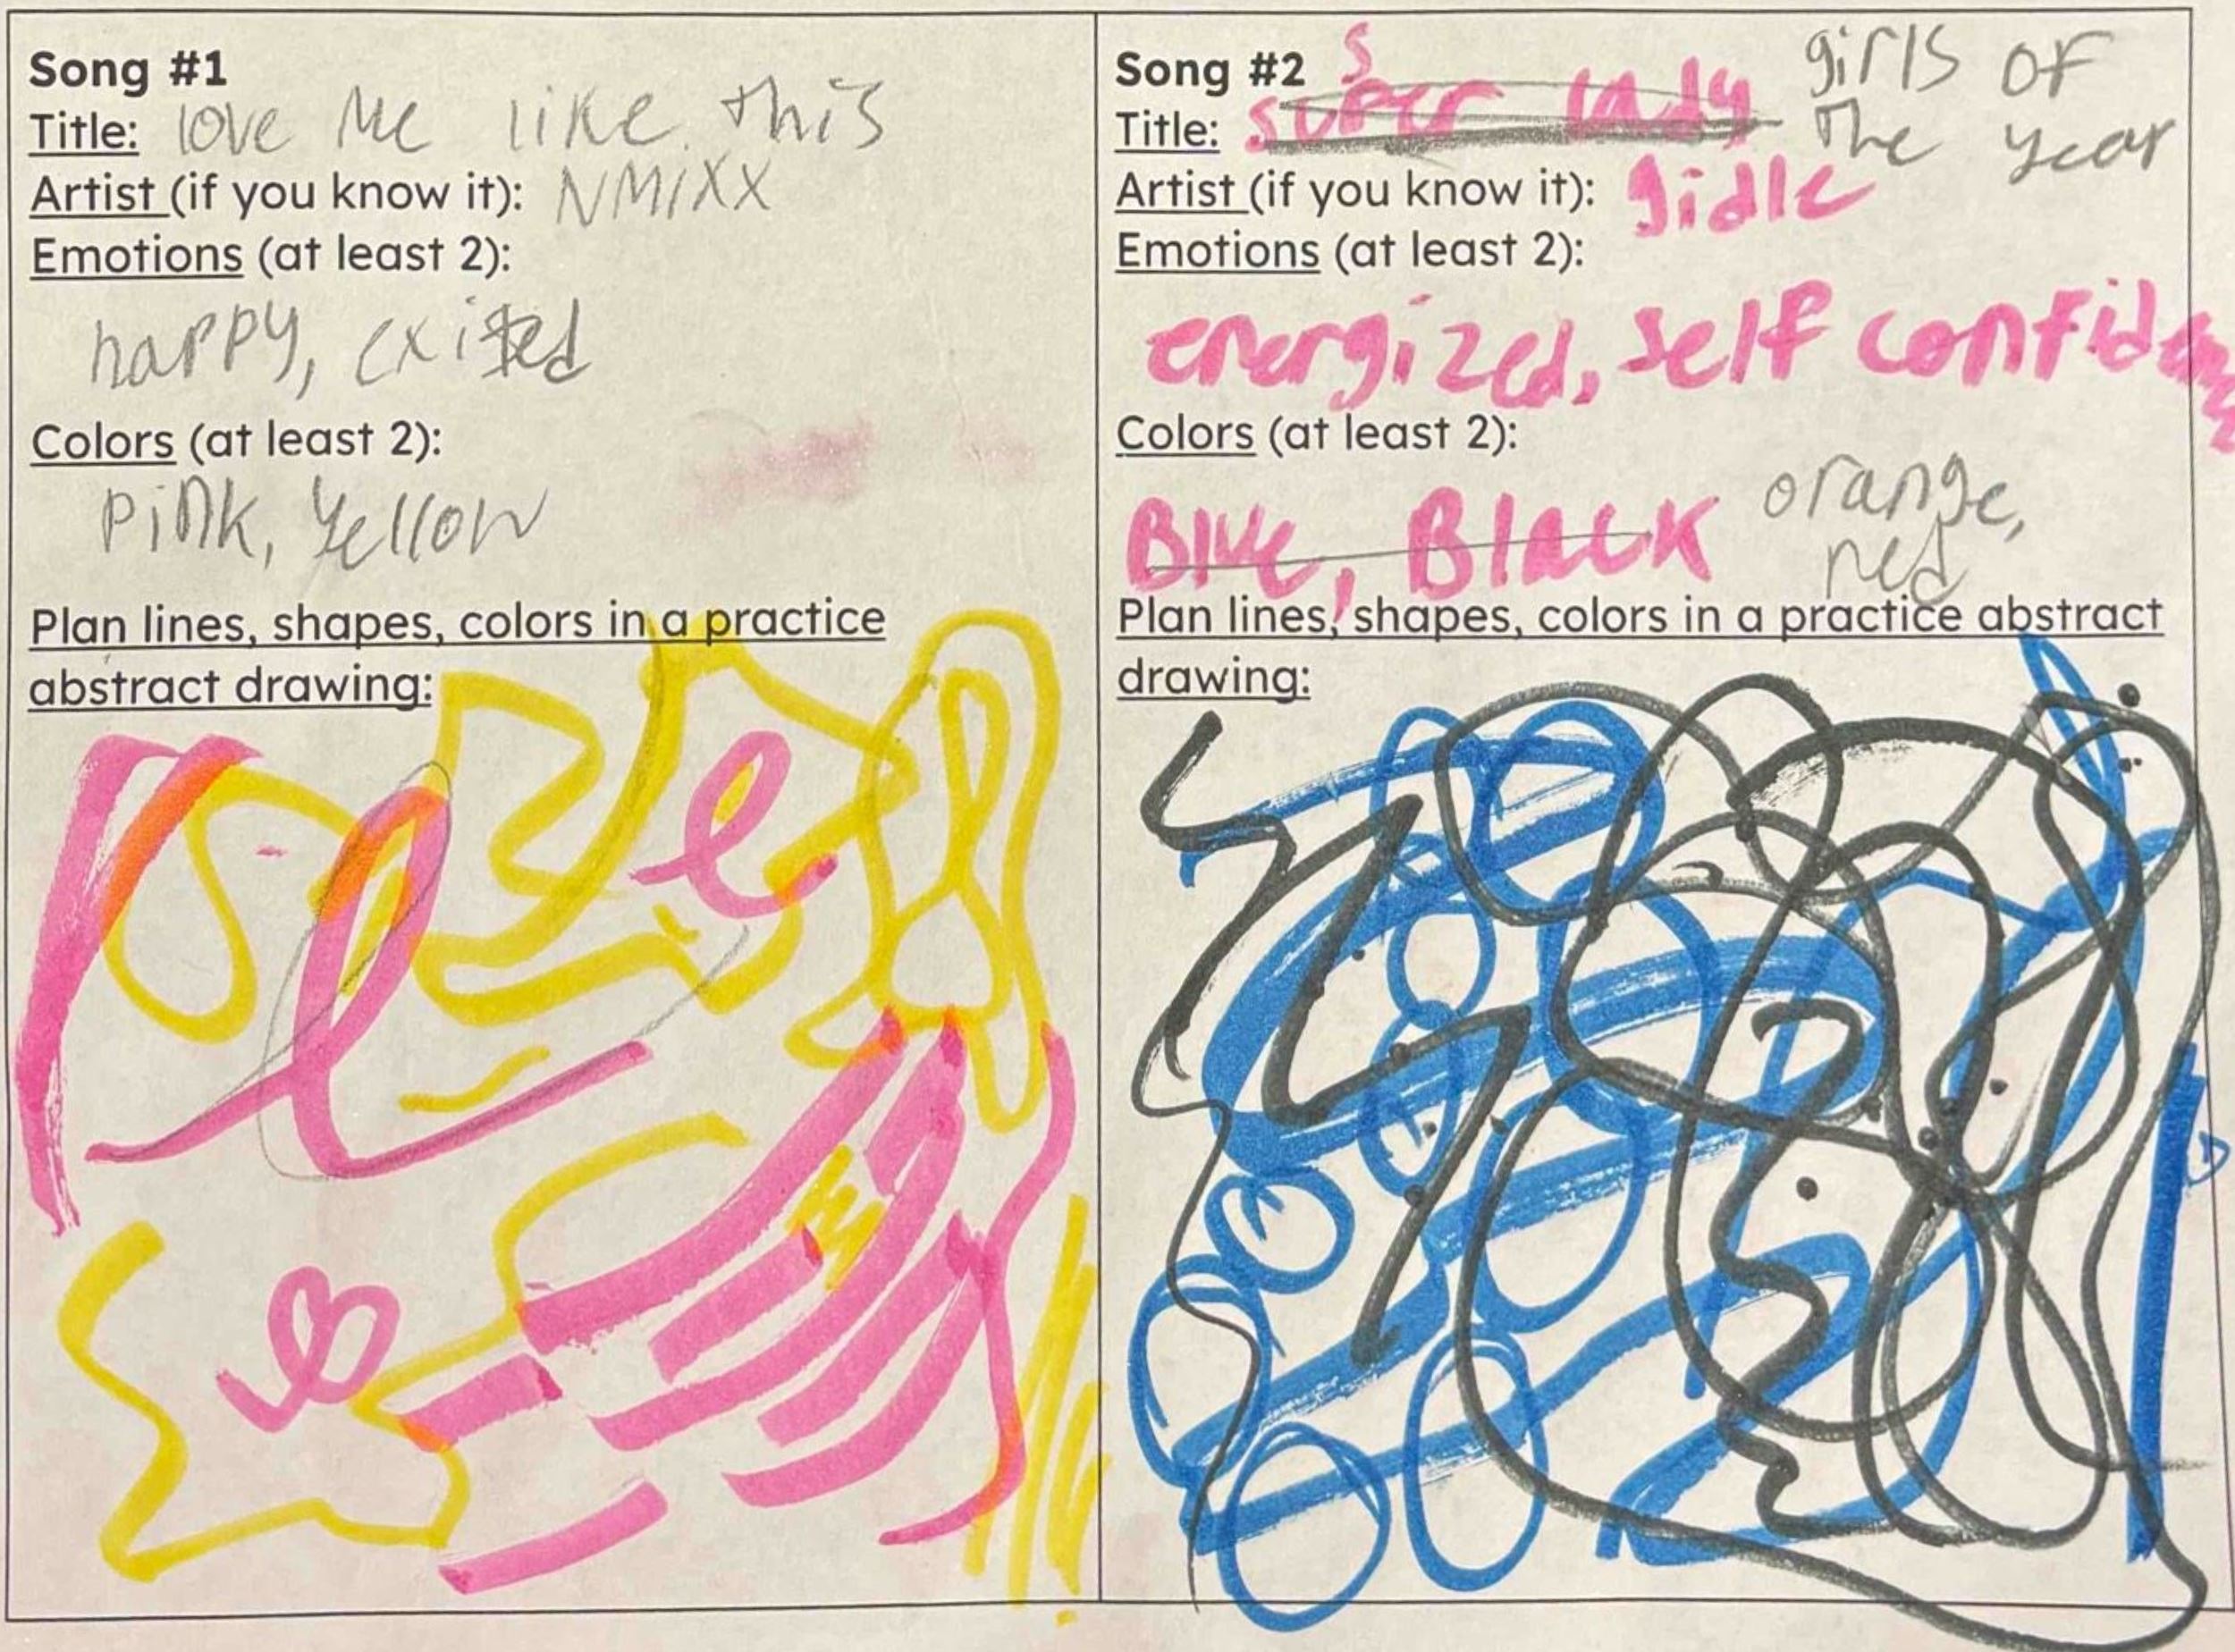 Song #1
Title: love Me like this
Artist (if you know it): NMIXX
Emotions (at least 2):
happy, exited
Colors (at least 2):
Pink, Yellow
Plan lines, shapes, colors in a practice
abstract drawing:
Song #2
Title: super lady girls of
the year
Artist (if you know it): gidle
Emotions (at least 2):
energized, self confident
Colors (at least 2):
Blue, Black orange,
red
Plan lines, shapes, colors in a practice abstract
drawing: